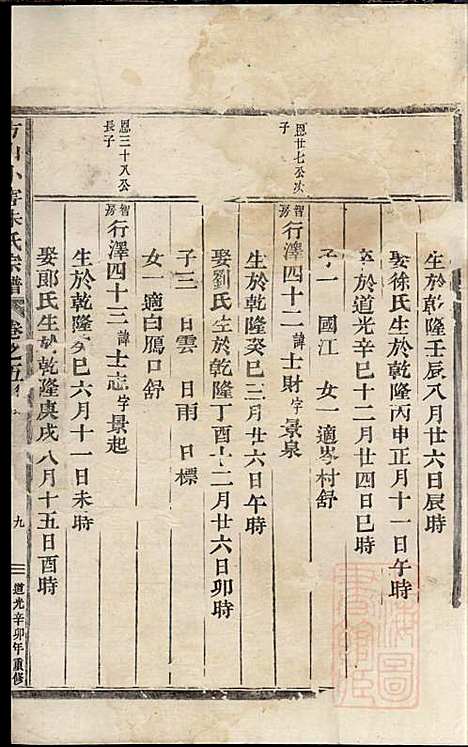 生於乾隆壬辰八月廿六日辰時
娶徐氏生於乾隆丙申正月十一日午時
於道光辛巳十二月廿四日巳時
子一 國江 女一適岑村舒
恩廿七公次子
智房 行澤四十二 諱士財 字景泉
生於乾隆癸巳三月廿六日午時
娶劉氏生於乾隆丁酉十二月廿六日卯時
子三 日雲 日雨 日標
女一適白鴈口舒
恩三十八公長子
智房 行澤四十三 諱士志 字景起
生於乾隆癸巳六月十一日未時
娶郎氏生於乾隆庚戌八月十五日酉時
氏宗譜 卷之五 九 道光辛卯年重修
圖書館